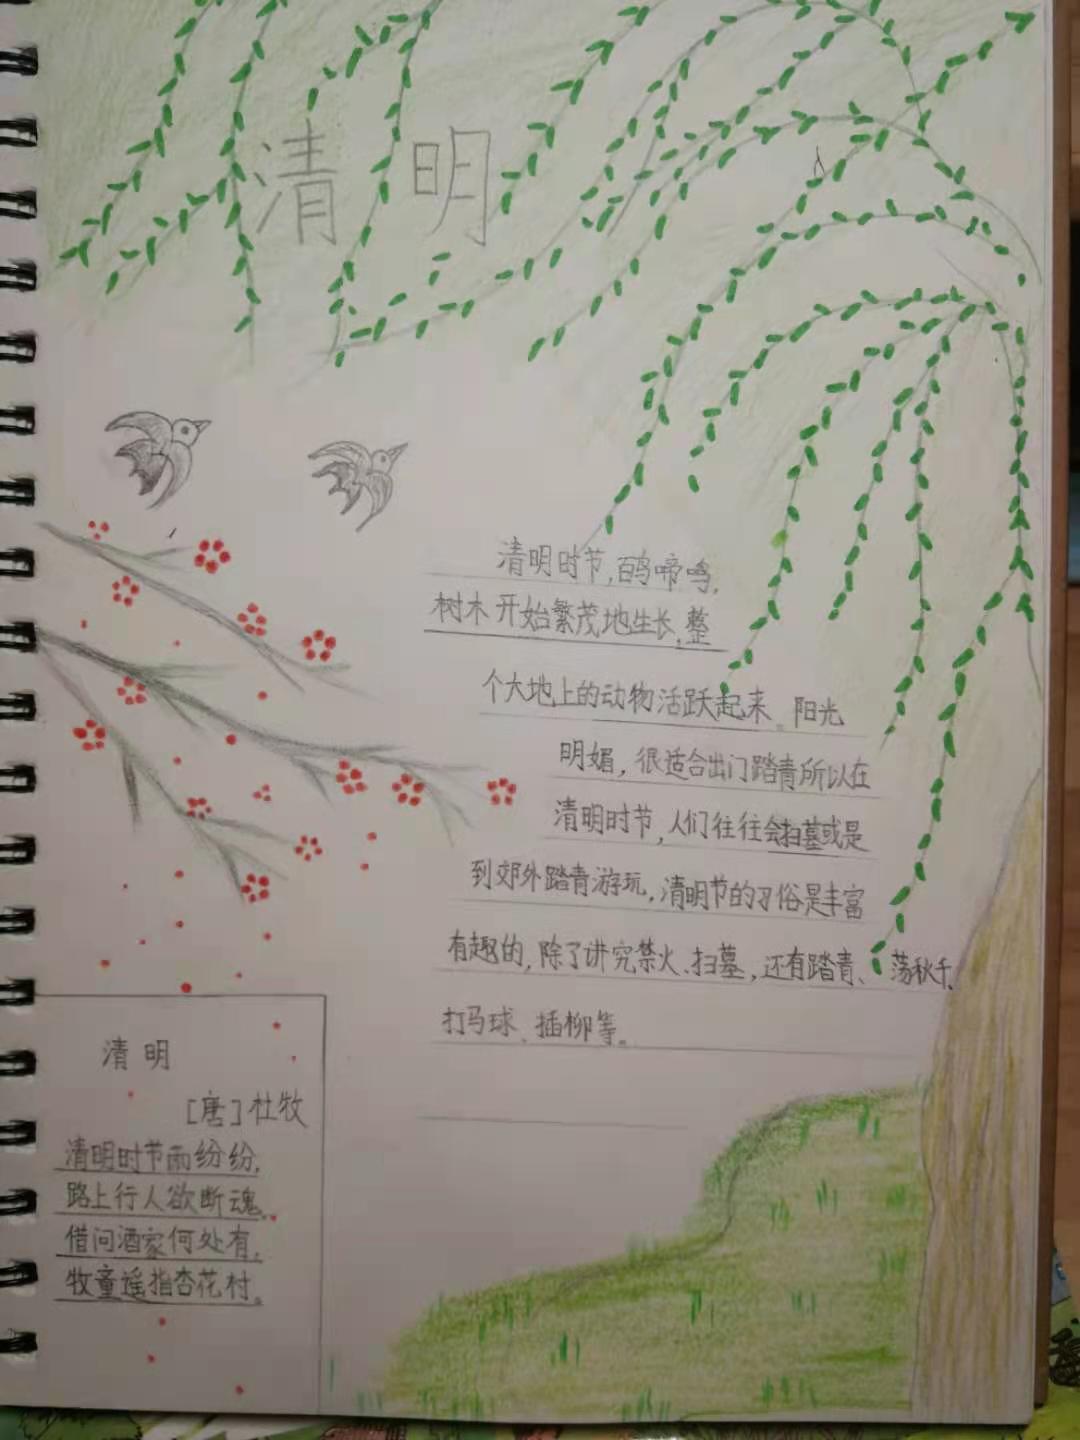 清明
清明时节,百鸟啼鸣,
树木开始繁茂地生长,整
个大地上的动物活跃起来。阳光
明媚,很适合出门踏青所以在
清明时节,人们往往会扫墓或是
到郊外踏青游玩,清明节的习俗是丰富
有趣的,除了讲究禁火、扫墓,还有踏青、荡秋千、
打马球、插柳等。
清明
[唐]杜牧
清明时节雨纷纷,
路上行人欲断魂。
借问酒家何处有,
牧童遥指杏花村。